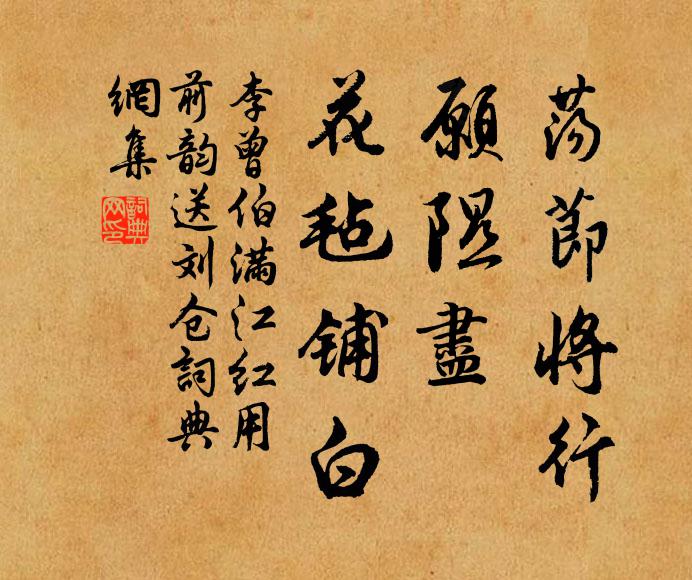 荡節将行
願隰盡
花毡铺白
李曾伯满江红用
前韵送刘仓詞典
網集
詞典網印